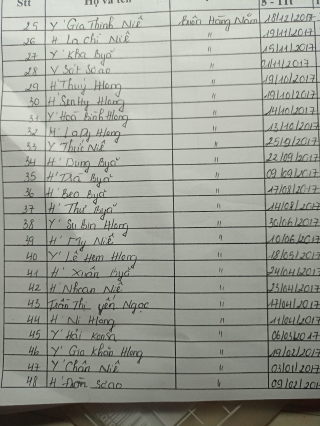 Stt Họ và tên 5-TH
25 Y' Gia Thinh Niê Buôn Hằng Năm 18/12/2017
26 H La Chi Niê " 19/11/2017
27 Y' Kha Byă " 15/11/2017
28 Y Sát Sơao " 01/11/2017
29 H' Thuỷ Hlong " 19/10/2017
30 H' SenHy Hlong " 19/10/2017
31 Y' Hoà Bình Hlong " 14/10/2017
32 H' LaDy Hlong " 13/10/2017
33 Y Thức Niê " 25/9/2017
34 H' Dung Byă " 22/09/2017
35 H' Trà Byă " 09/09/2017
36 H' Beo Byă " 17/08/2017
37 H' Thư Byă " 14/08/2017
38 Y' Su Bin Hlong " 30/06/2017
49 H' My Niê " 10/06/2017
40 Y' Lê Hem Hlong " 18/05/2017
41 H' Xuân Byă " 24/04/2017
42 H' Nhoan Niê " 23/04/2017
43 Trần Thị Yến Ngọc 17/04/2017
44 H' Ni Hlong " 11/04/2017
45 Y' Hải Ksơr " 06/03/2017
46 Y' Gia Khân Hlong " 19/02/2017
47 Y' Chấn Niê " 03/01/2017
48 H' Đan Sơao " 09/02/201